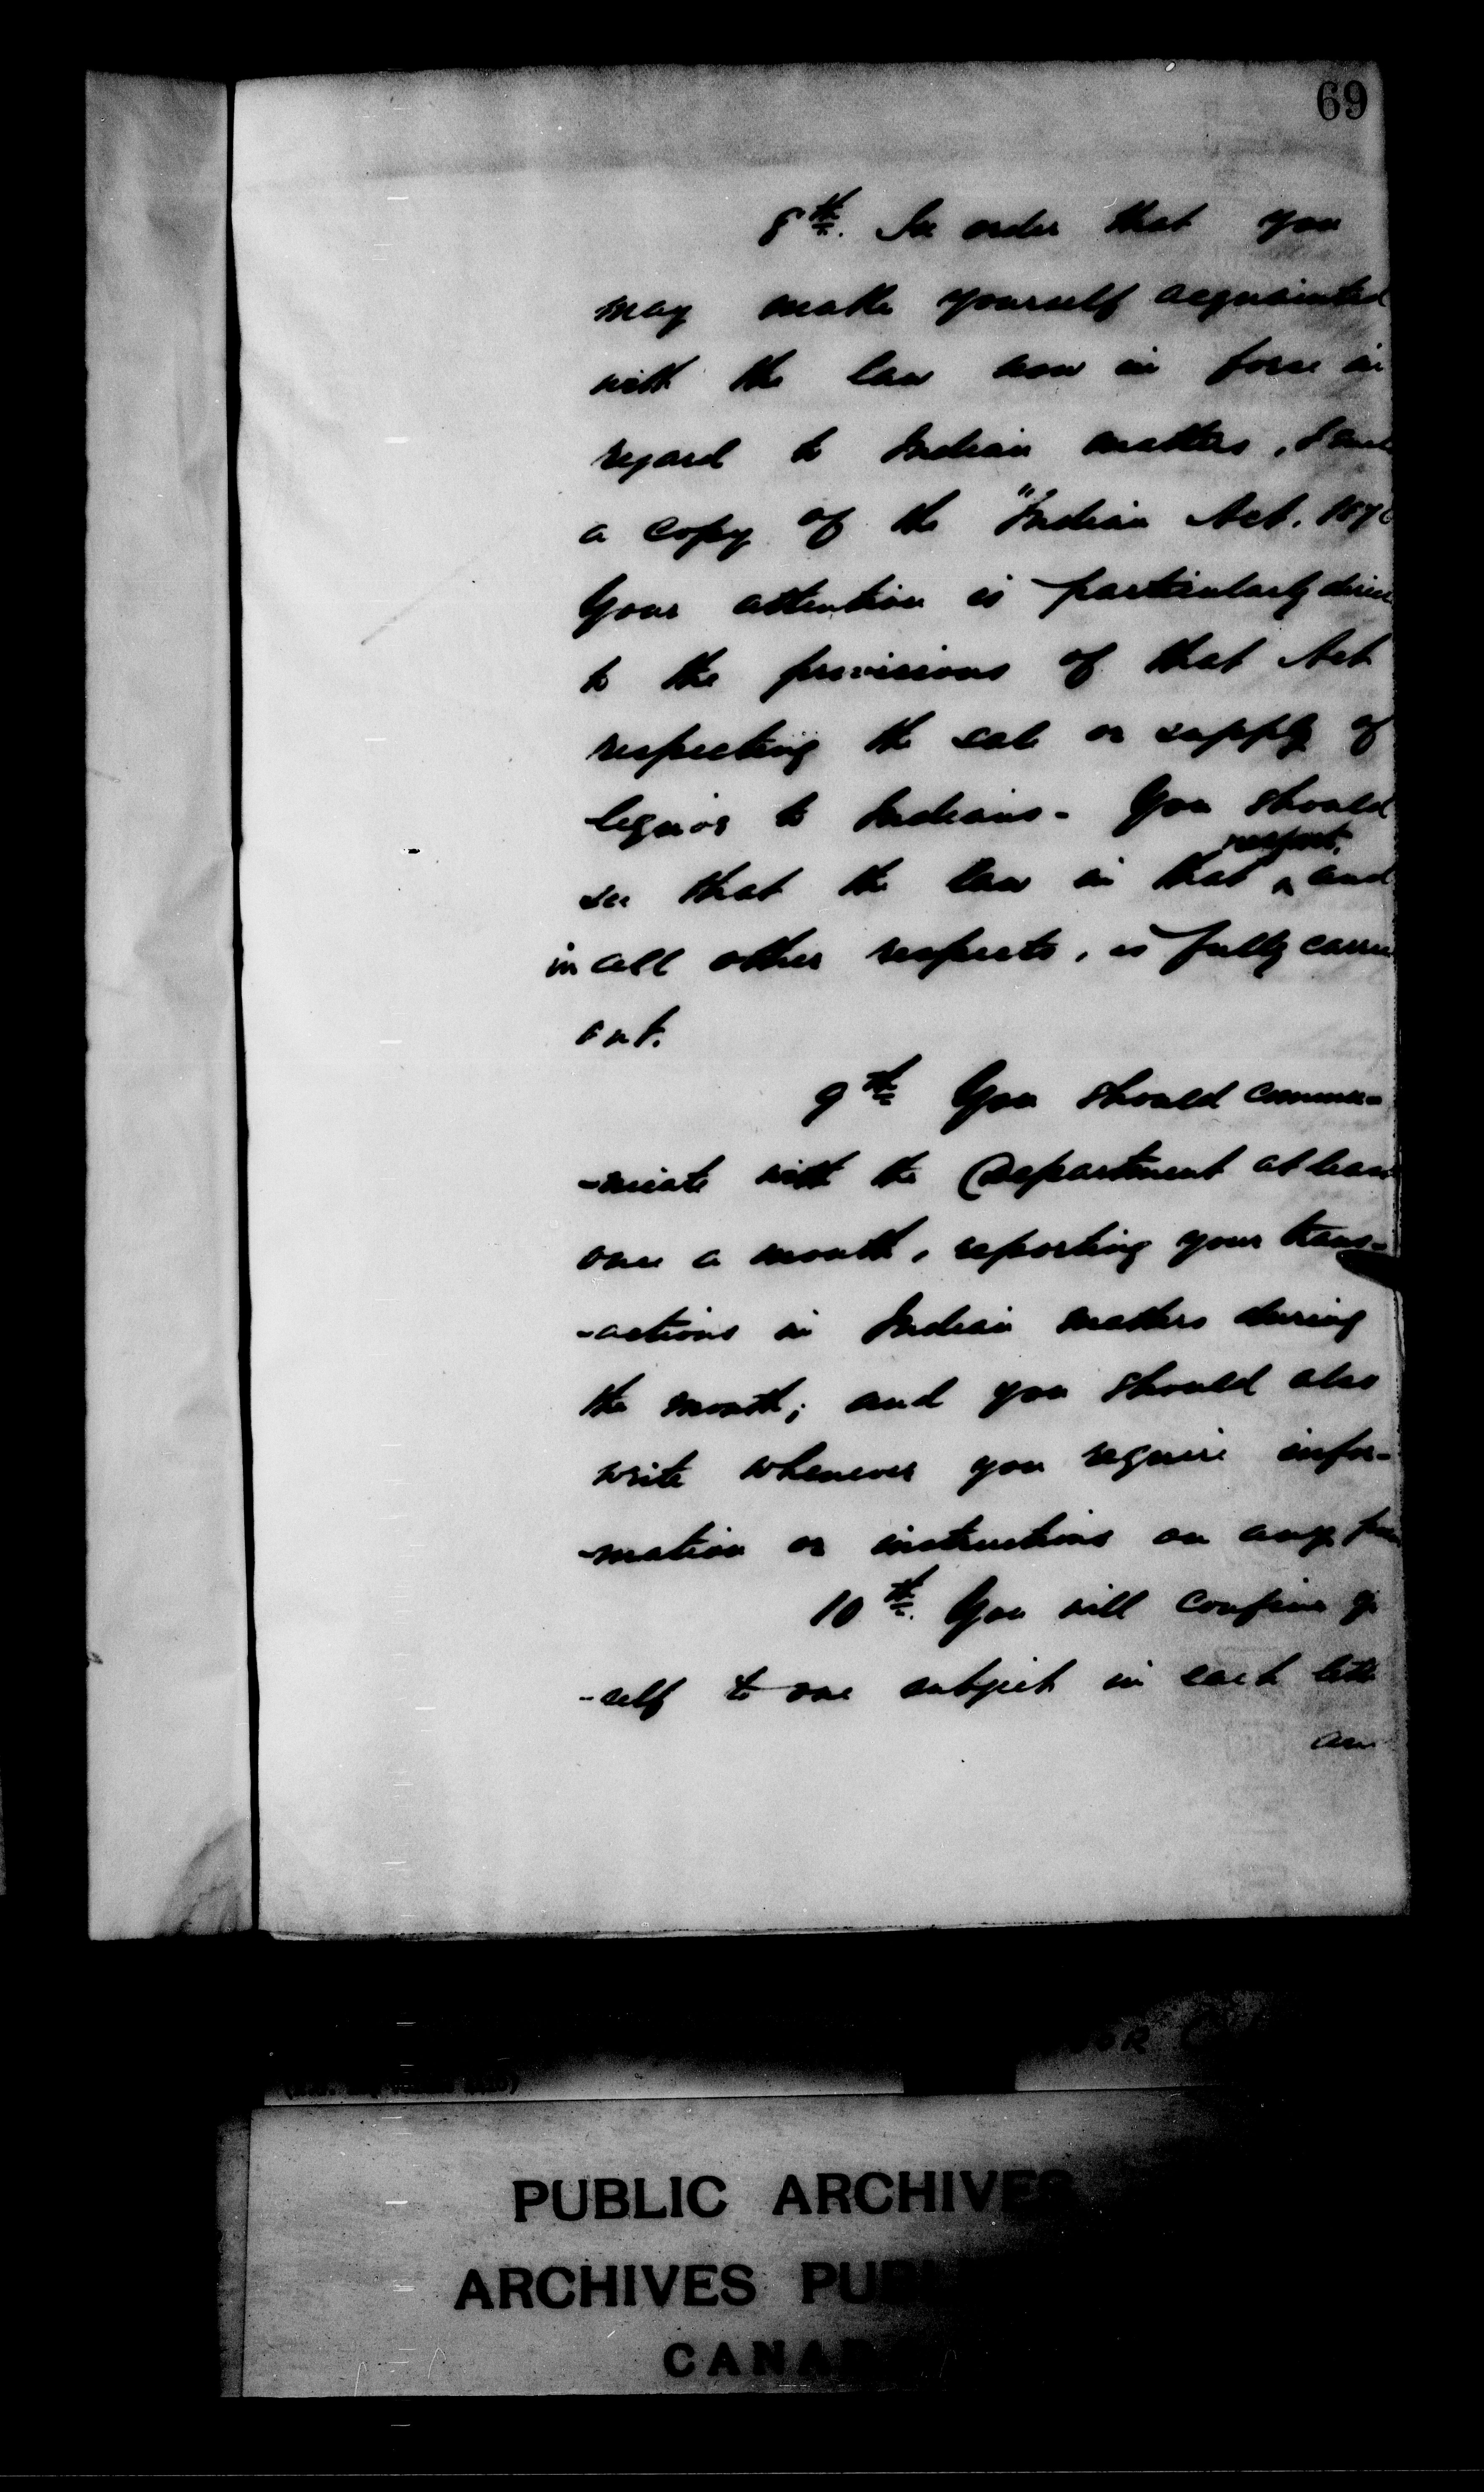 69
8th. In order that you
may make yourself acquainted
with the law now in force in
regard to Indian matters, I send
a copy of the "Indian Act. 187
Your attention is particularly direc
to the provisions of that Act
respecting the sale or supply of
liquor to Indians - You should
respect,
see that the law in that ^ and
in all other respects, is fully carrie
out.
9th You should commu-
-nicate with the Department at leas
once a month, reporting your trans-
-actions in Indian matters during
the month; and you should also
write whenever you require infor-
-mation or instructions on any
10th. You will confine y
-self to one subject in each lette
an
PUBLIC ARCHIVES
ARCHIVES PUB
CANA